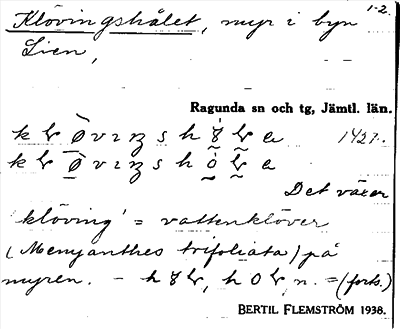 Klövingshålet, myr i byn 1-2.
Lien,
Ragunda sn och tg, Jämtl. län.
1427.
Det växer
'klöving' = vattenklöver
(Menyanthes trifoliata) på
myren. –
n. = (forts.)
BERTIL FLEMSTRÖM 1938.